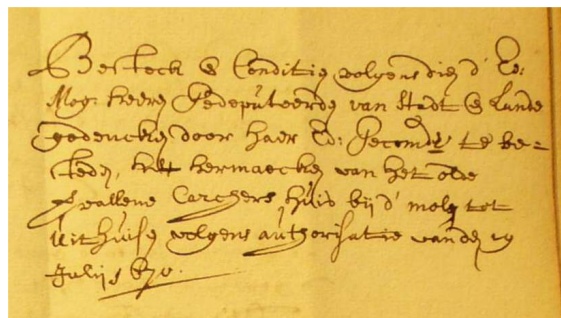 Besteck & Conditie volgens dien d' Ed:
Mog: Heeren Gedeputeerde van Stadt & Lande
gedencken door haer Ed: Gecomde te be=
steden, het hermaecken van het olde
vallene Carchers huis bij d' molen tot
Uithuisen volgens authorisatie vanden 19
Julij 1670.